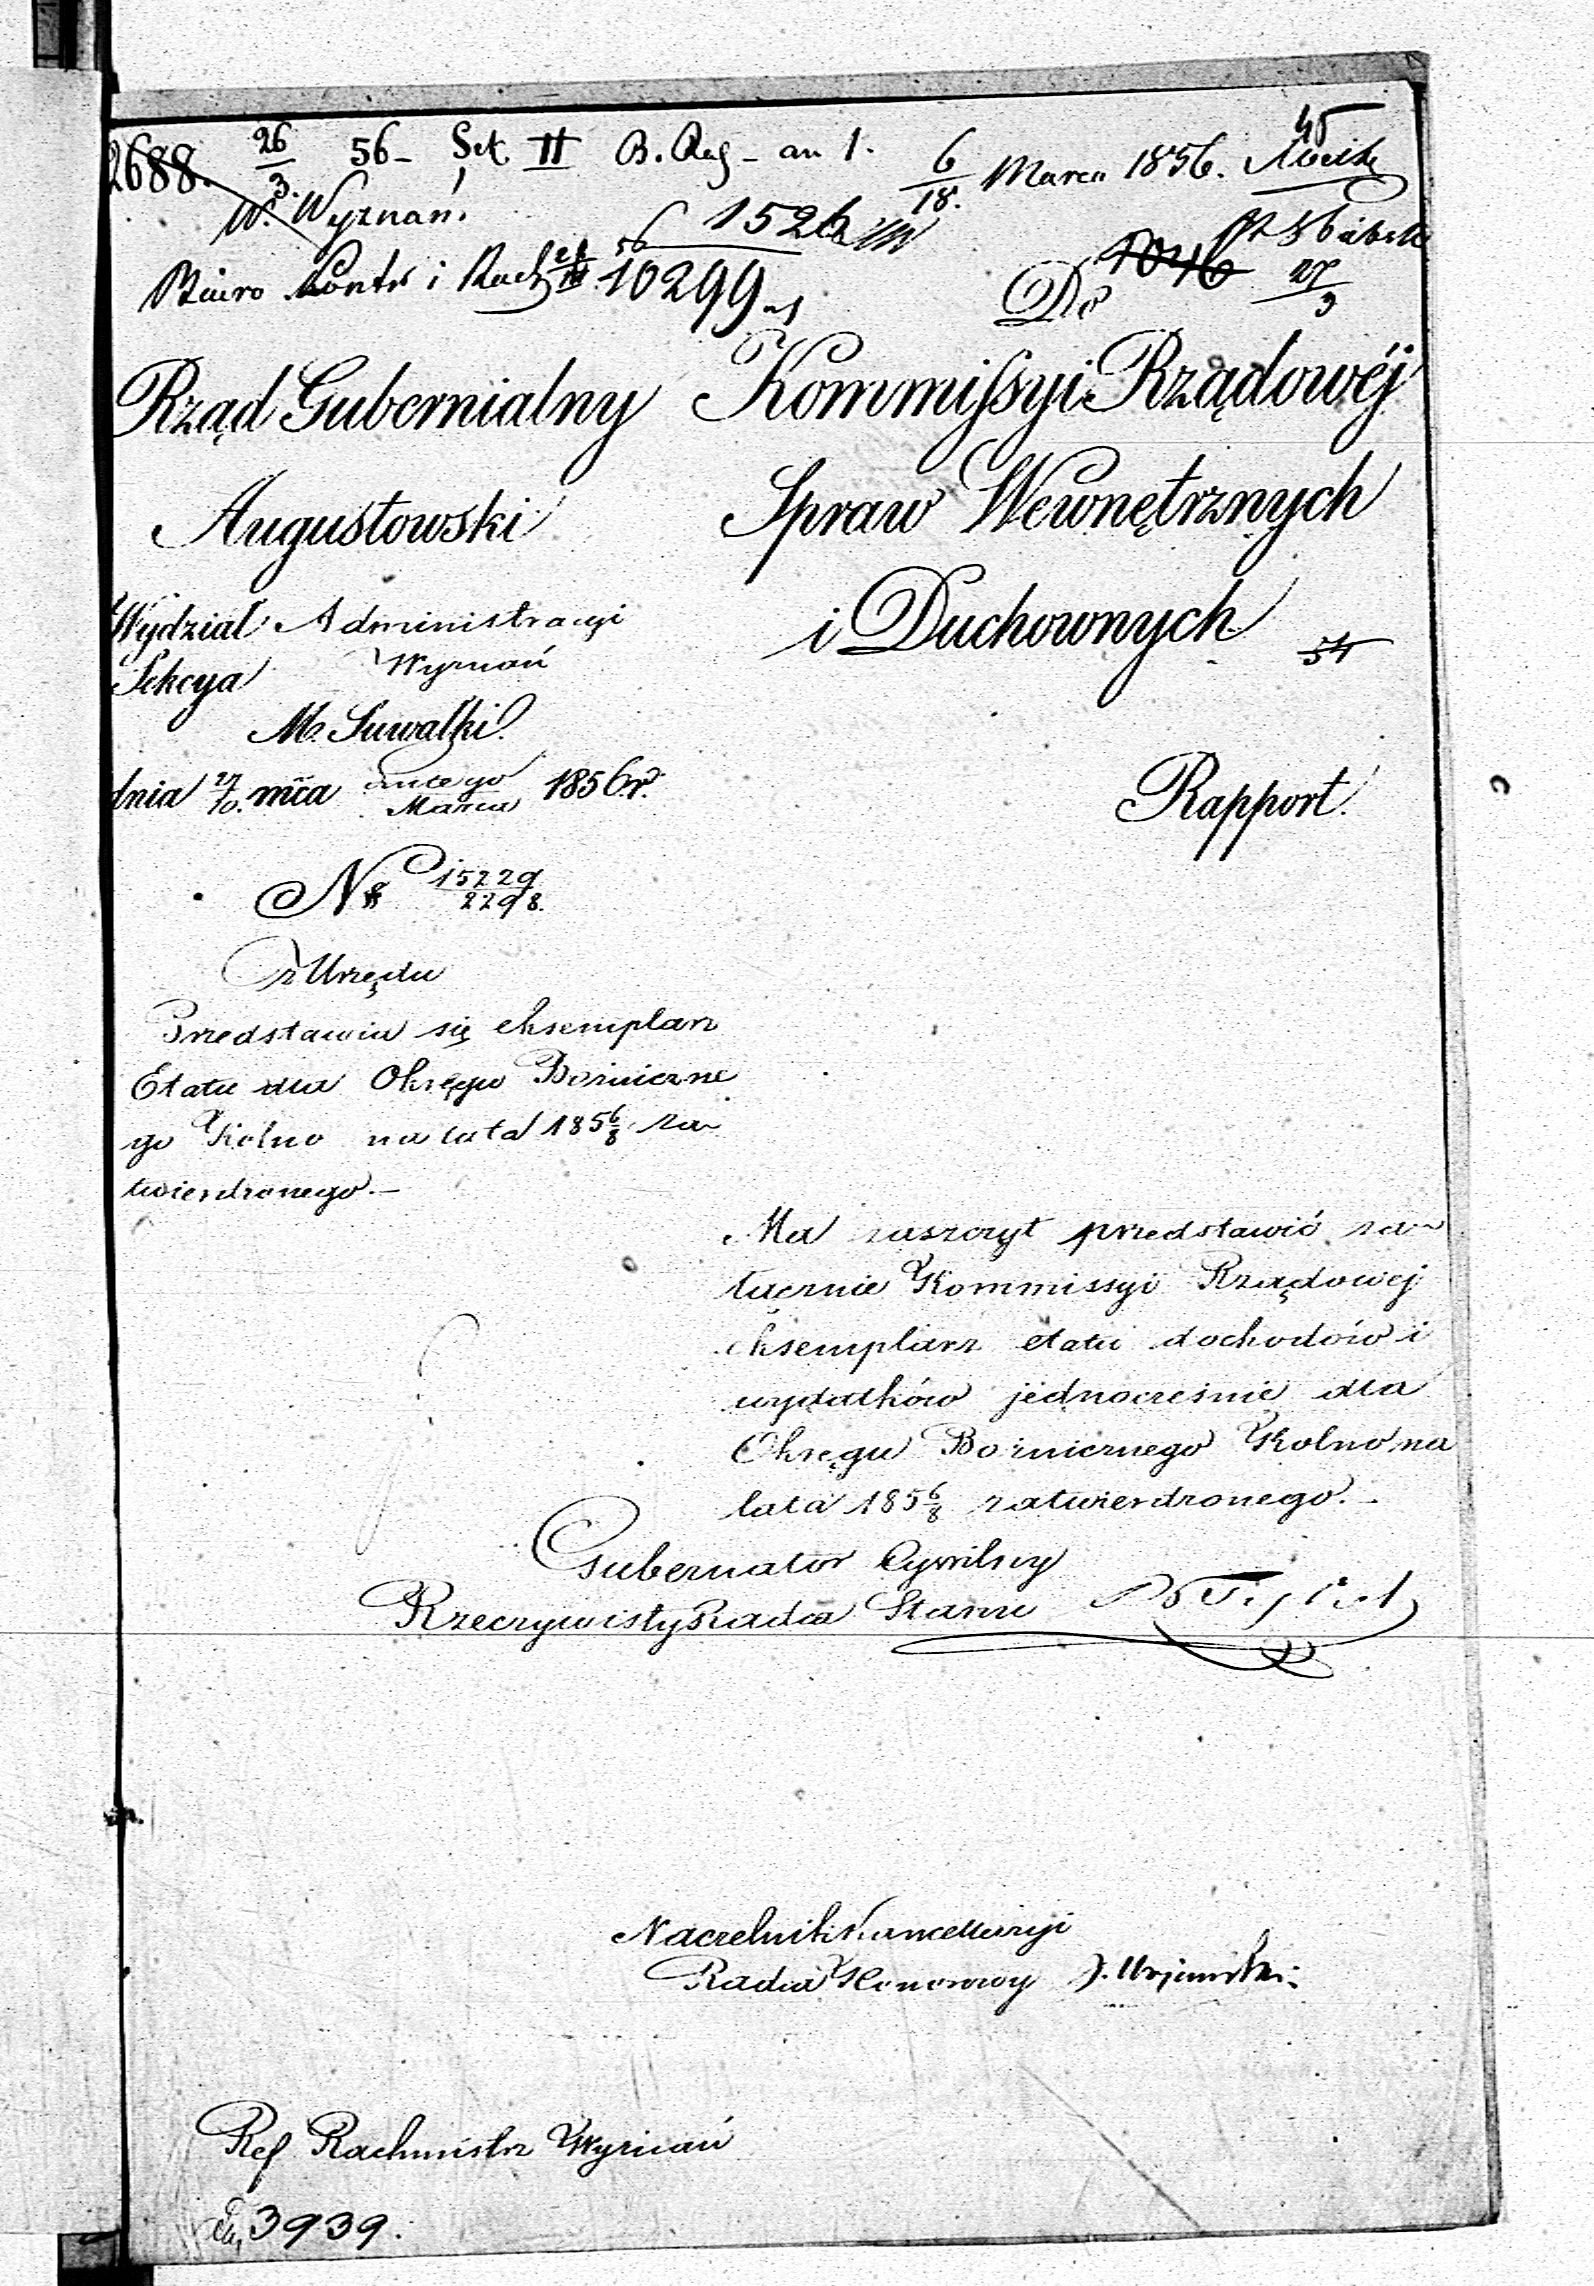 2688. 26/3 56 - Set II B. Rag - an 1.
6/18. Marca 1856.
45
W. Wyznań.
1526
Biuro Kontr i Rach 56 10299
1046
27/3
Do
Rząd Gubernialny
Augustowski
Kommissyi Rządowéj
Spraw Wewnętrznych
i Duchownych
54
Wydział Administracyi
Sekcya Wyznań
M. Suwałki.
dnia 27/10. mca Lutego/Marca 1856 r.
Rapport.
N 15229/2298.
z Urzędu
Przedstawia się eksemplarz
Etatu dla Okręgu Bożniczne
go Kolno na lata 185 6/8 za-
twierdzonego.-
Ma zaszczyt przedstawić za-
łącznie Kommissyi Rządowej
eksemplarz etatu dochodów i
wydatków jednocześnie dla
Okręgu Bożnicznego Kolno na
lata 185 6/8 zatwierdzonego.-
Gubernator Cywilny
Rzeczywisty Radca Stanu
Naczelnik Kancellaryi
Radca Honorowy
Ref Rachmistrz Wyznań
3939.